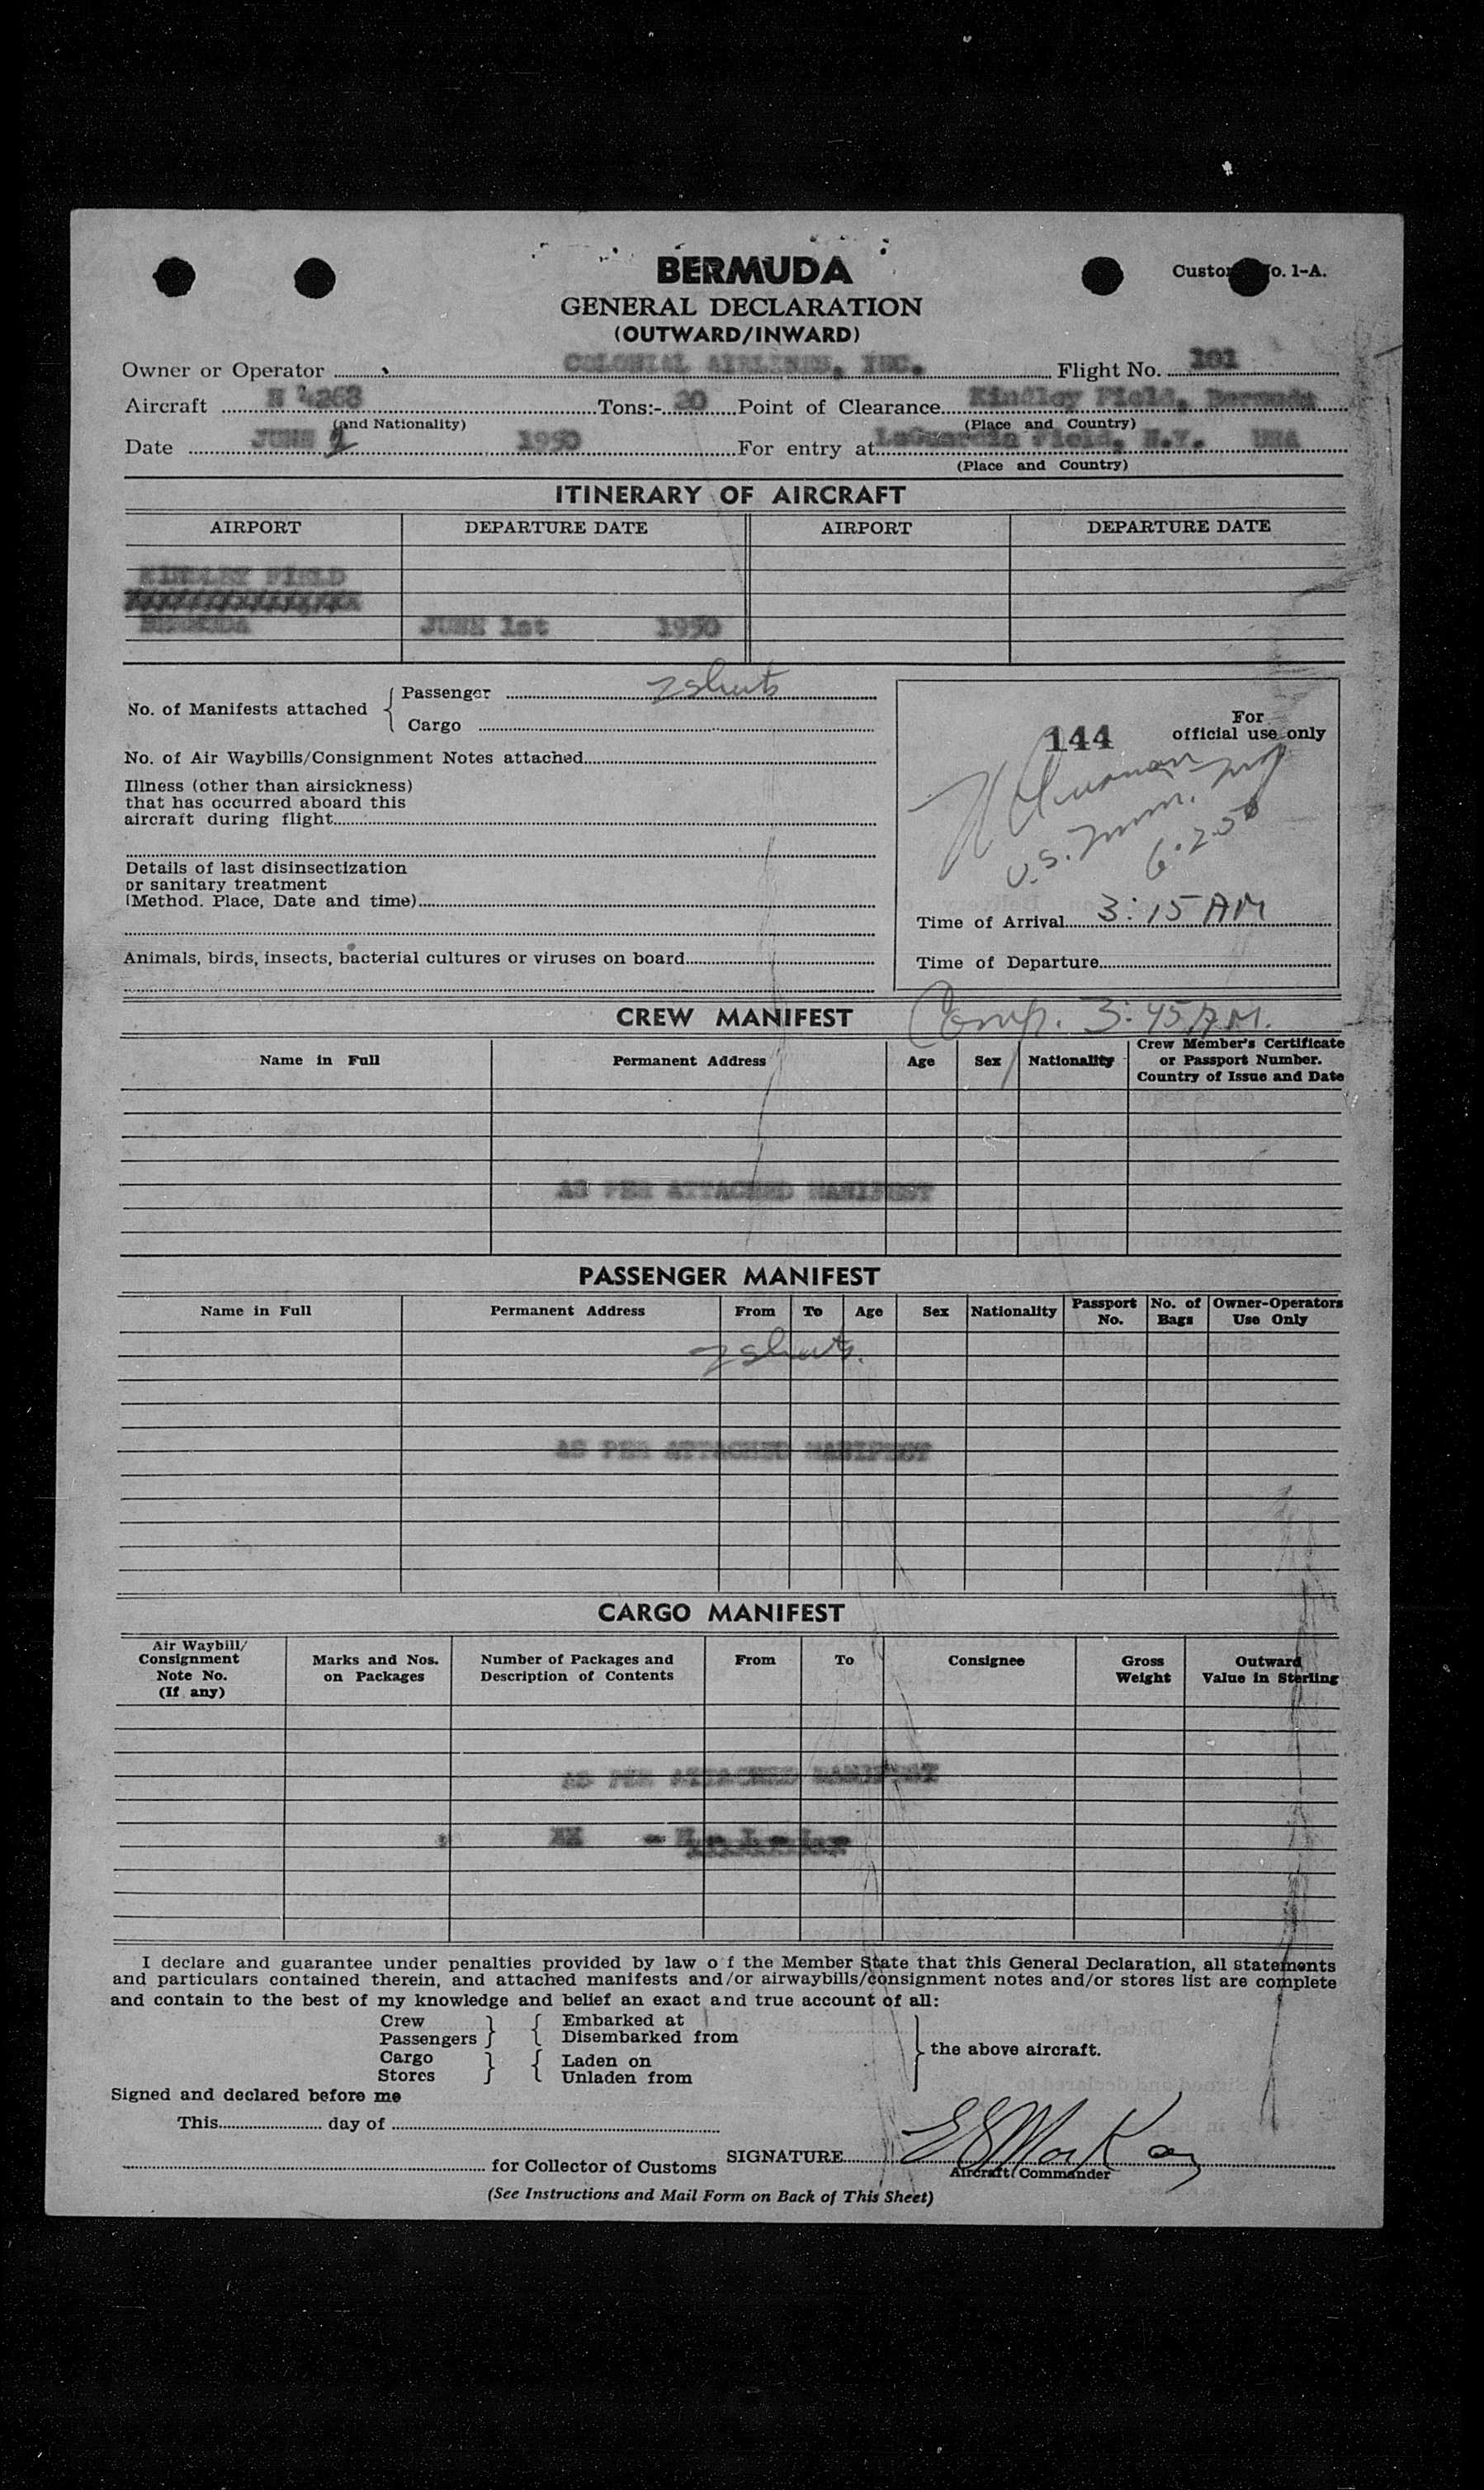 BERMUDA
Custo o. 1-A.
GENERAL DECLARATION
(OUTWARD/INWARD)
Owner or Operator COLONIAL AIRLINES, INC. Flight No. 101
Aircraft N 4268 Tons:- 20 Point of Clearance Kindley Field, Bermuda
(and Nationality) (Place and Country)
Date JUNE 2 1950 For entry at LaGuardia Field, N.Y. USA
(Place and Country)
ITINERARY OF AIRCRAFT
AIRPORT DEPARTURE DATE AIRPORT DEPARTURE DATE
KINDLEY FIELD
BERMUDA JUNE 1st 1950
No. of Manifests attached { Passenger 7 sheets
Cargo
For
official use only
144
No. of Air Waybills/Consignment Notes attached
Illness (other than airsickness)
that has occurred aboard this
aircraft during flight
U.S. Imm. Insp
6-2-50
Details of last disinsectization
or sanitary treatment
(Method. Place, Date and time)
Time of Arrival 3:15 AM
Animals, birds, insects, bacterial cultures or viruses on board
Time of Departure
CREW MANIFEST Comp. 3:45 A.M.
Name in Full Permanent Address Age Sex Nationality Crew Member's Certificate
or Passport Number.
Country of Issue and Date
AS PER ATTACHED MANIFEST
PASSENGER MANIFEST
Name in Full Permanent Address From To Age Sex Nationality Passport No. No. of Bags Owner-Operators Use Only
7 sheets.
AS PER ATTACHED MANIFEST
CARGO MANIFEST
Air Waybill/
Consignment
Note No.
(If any)
Marks and Nos.
on Packages
Number of Packages and
Description of Contents
From To Consignee Gross
Weight
Outward
Value in Sterling
AS PER ATTACHED MANIFEST
I declare and guarantee under penalties provided by law o f the Member State that this General Declaration, all statements
and particulars contained therein, and attached manifests and/or airwaybills/consignment notes and/or stores list are complete
and contain to the best of my knowledge and belief an exact and true account of all:
Crew } { Embarked at
Passengers } { Disembarked from
Cargo } { Laden on
Stores } { Unladen from
} the above aircraft.
Signed and declared before me
This day of
for Collector of Customs SIGNATURE E S MacKay
Aircraft Commander
(See Instructions and Mail Form on Back of This Sheet)